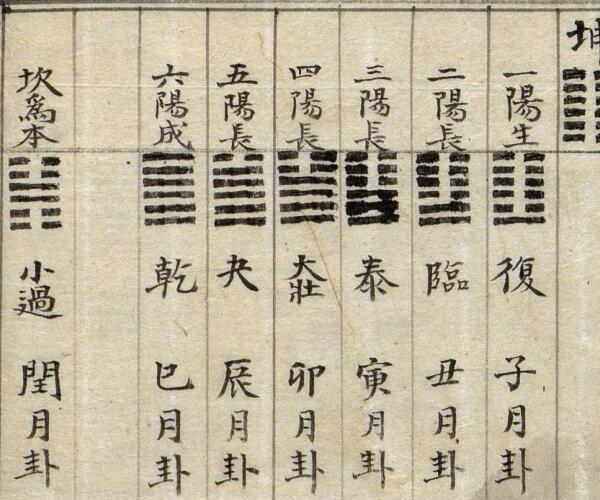 坤
一陽生
復
子月卦
二陽長
臨
丑月卦
三陽長
泰
寅月卦
四陽長
大壯
卯月卦
五陽長
夬
辰月卦
六陽成
乾
巳月卦
坎爲本
小過
閏月卦